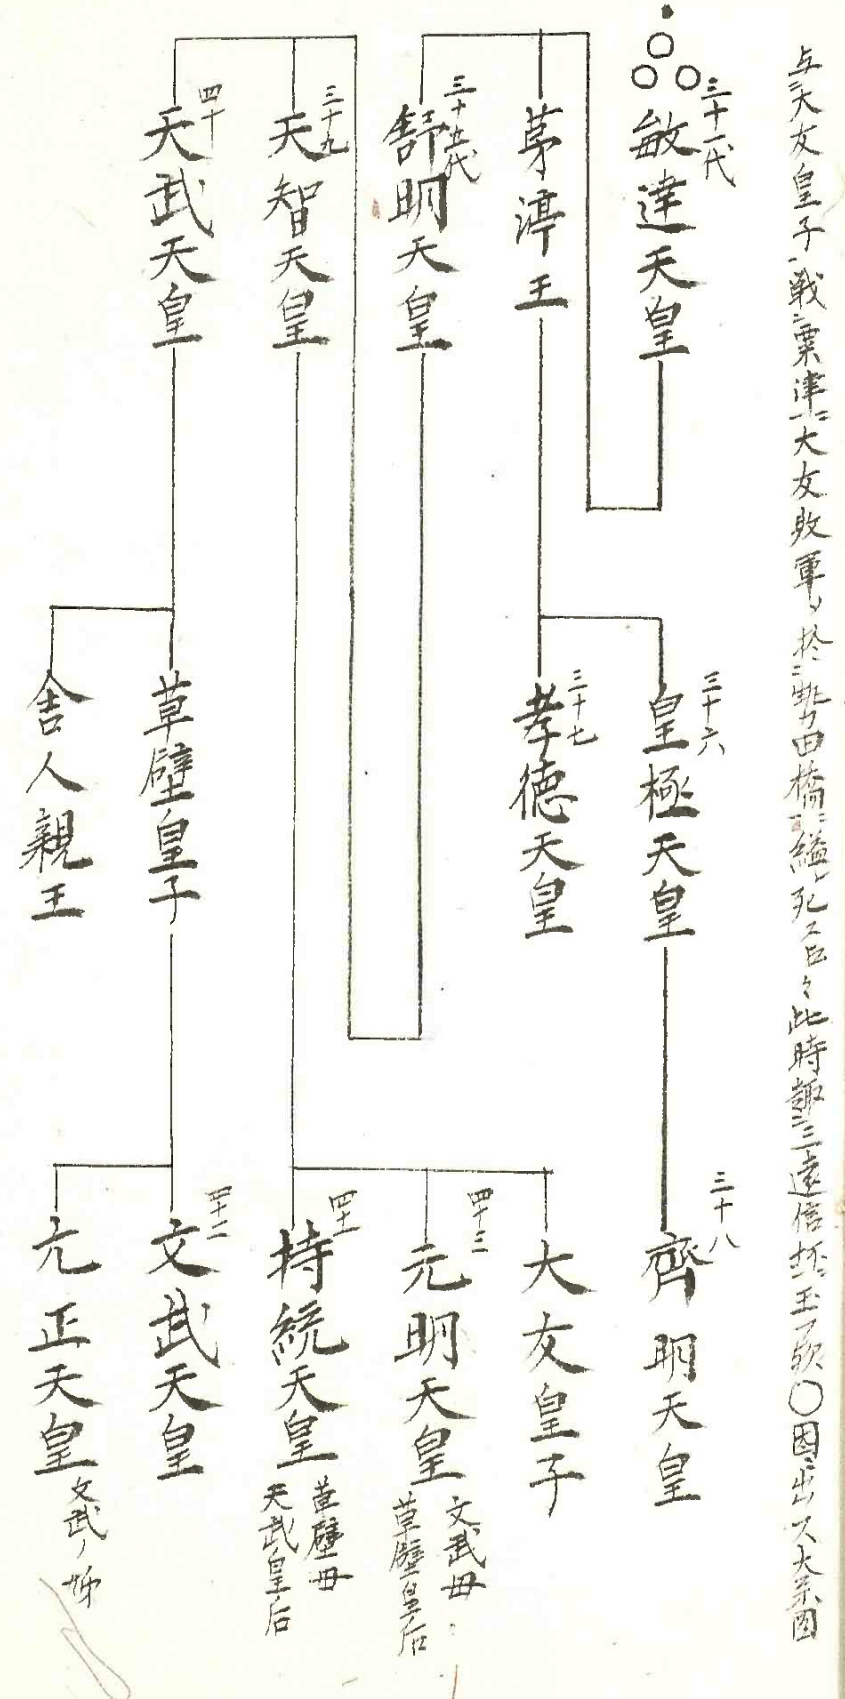 与大友皇子戦粟津大友敗軍〻於勢田橋縊死ス
此時趣三遠信
因出ス大系図
三十一代
敏達天皇
茅渟王
三十五代
舒明天皇
三十九
天智天皇
四十
天武天皇
三十六
皇極天皇
三十七
孝徳天皇
草壁皇子
舎人親王
三十八
齊明天皇
大友皇子
四十三
元明天皇
文武母
草壁皇后
四十一
持統天皇
草壁母
天武皇后
四十二
文武天皇
元正天皇
文武ノ姉